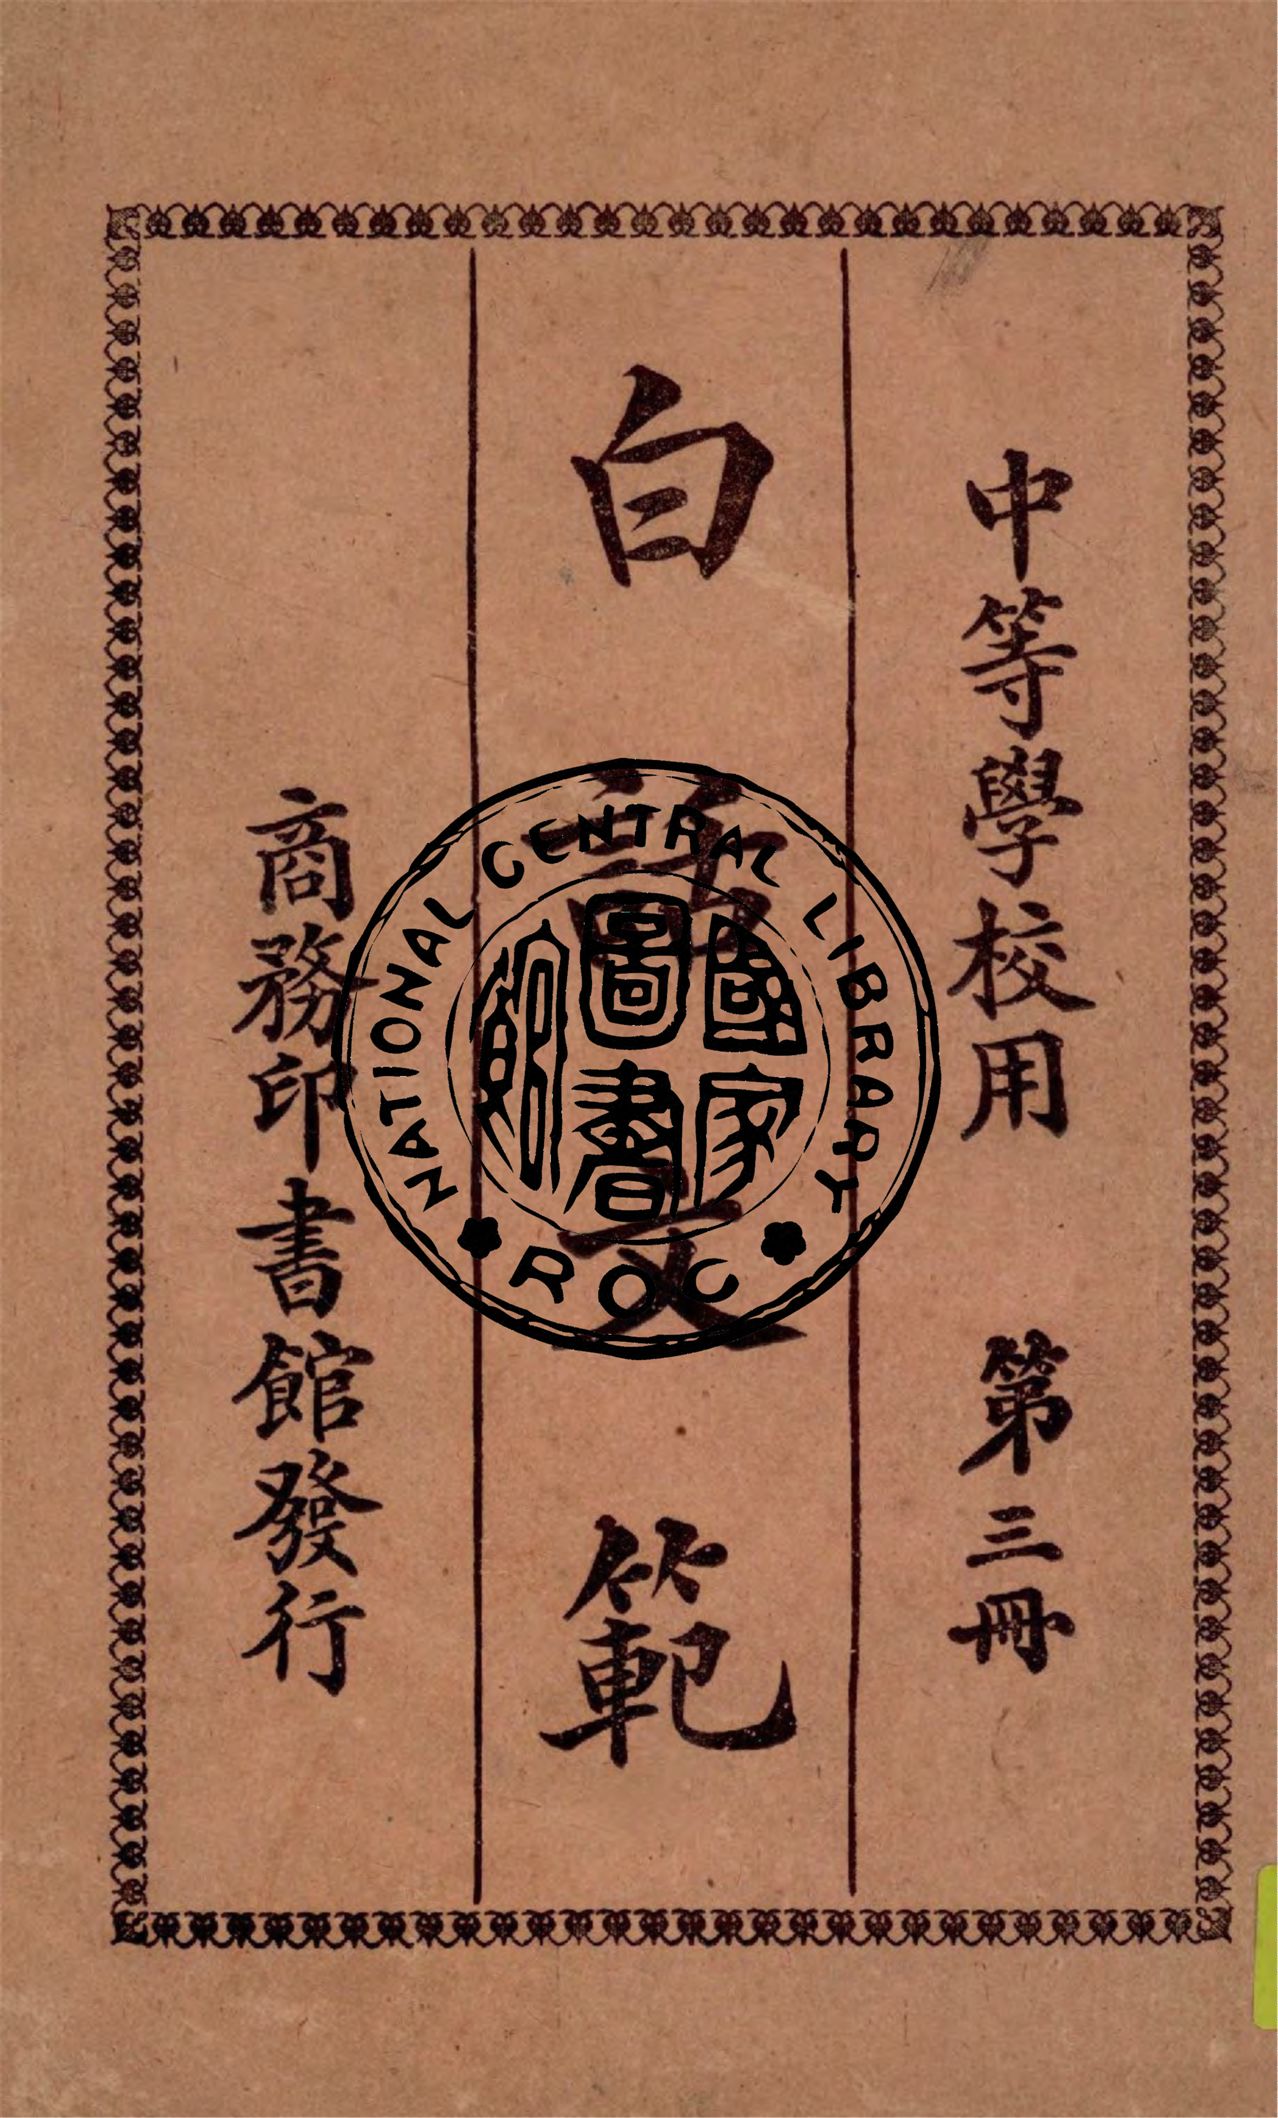 中等學校用 第三冊
白話文範
商務印書館發行
NATIONAL CENTRAL LIBRARY
ROC
國家圖書館